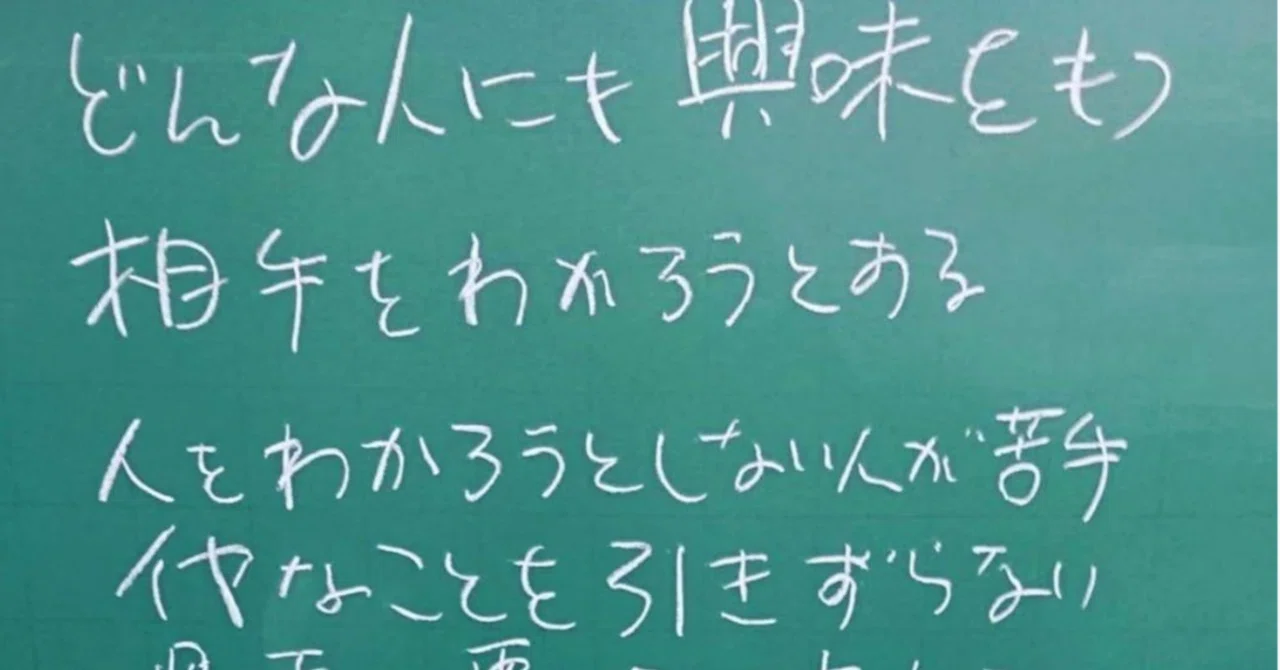 どんな人にも興味をもつ
相手をわかろうとする
人をわかろうとしない人が苦手
イヤなことを引きずらない